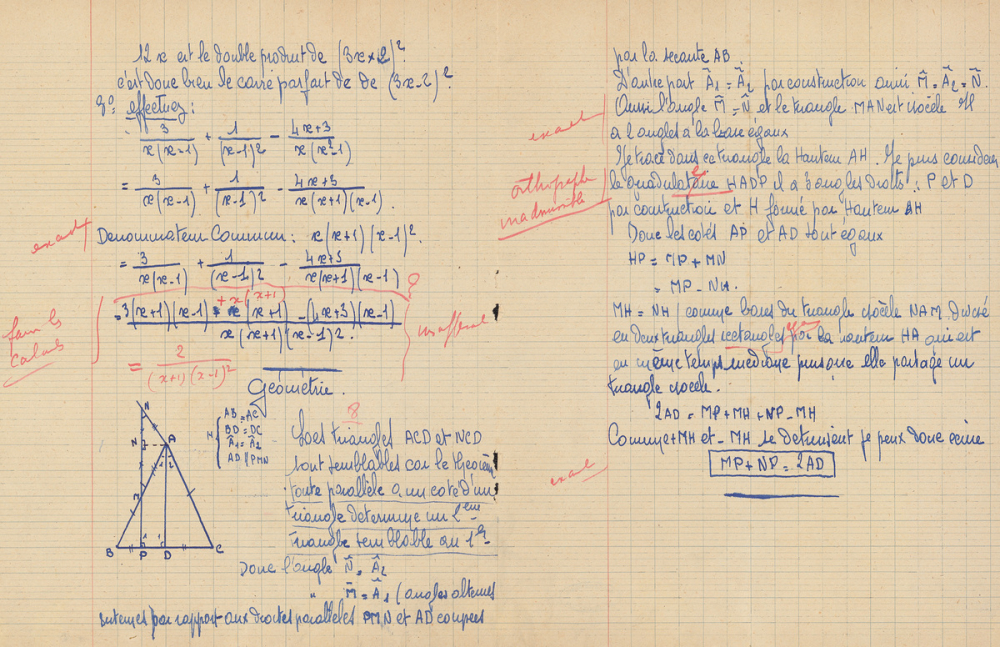 12x est le double produit de (3x×2)²
c'est donc bien le carré parfait de de (3x-2)².
3°. effectuez :
3/x(x-1) + 1/(x-1)2 - 4x+3/x(x²-1)
= 3/x(x-1) + 1/(x-1)2 - 4x+3/x(x+1)(x-1).
exact
Denominateur Commun : x(x+1)(x-1)².
= 3/x(x-1) + 1/(x-1)2 - 4x+3/x(x+1)(x-1)
+ x(x+1)
= 3(x+1)(x-1) (x+1) - (4x+3)(x-1)/x(x+1)(x-1)2.
?
inachevé
calculs
= 2/(x+1)(x-1)²
Géométrie.
8
H { AB = AC
BD = DC
Â1 = Â2
AD // PMN
N
N
A
M
B P D C
1 2
1 1
Les triangles ACD et NCD
sont semblables car le theorème
toute parallèle a un coté d'un
triangle determine un 2em
triangle semblable au 1er
Donc l'angle N̂ = Â2
" M̂ = Â1 (angles alternes
internes par rapport aux droites parallèles PMN et AD coupées
par la secante AB.
D'autre part Â1 = Â2 par construction ainsi M̂ = Â2 = N̂.
Ainsi l'angle M̂ = N̂ et le triangle MAN est isocèle. Il
exact
a 2 angles à la base égaux
Je trace dans ce triangle la Hauteur AH. Je puis considerer
orthographe
inadmissible
le quadulatère HADP il a 3 angles droits : P et D
par construction et H formé par Hauteur AH
Donc les cotés AP et AD sont égaux
HP = MP + MN
= MP - NH.
MH = NH (comme bases du triangle isocèle NAM. Divisé
en deux triangles rectangles par la hauteur HA qui est
en même temps mediane puisque elle partage un
triangle isocèle.
2AD = MP + MH + NP - MH
Comme + MH et - MH se detruisent je peux donc ecrire
exact
MP + NP = 2AD